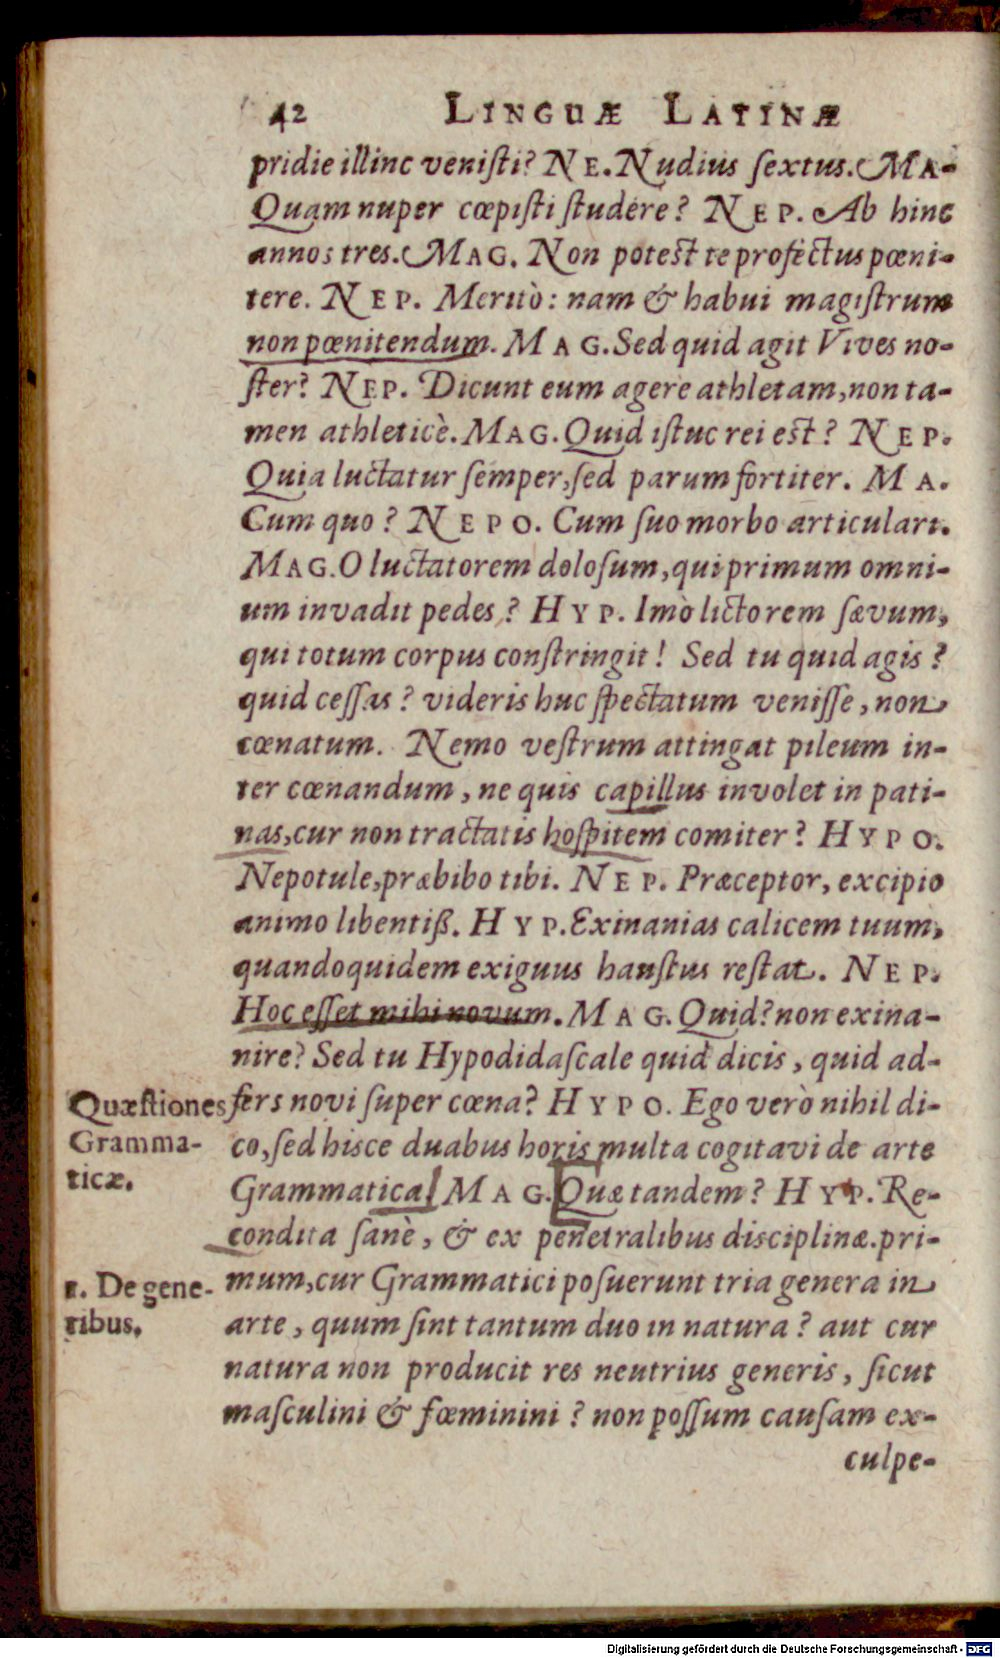 42 LINGUÆ LATINÆ
pridie illinc veniſti? NE. Nudius ſextus. MA-
Quam nuper cœpiſti ſtudere? NEP. Ab hinc
annos tres. MAG. Non poteſt te profectus pœni-
tere. NEP. Meritò: nam & habui magiſtrum
non pœnitendum. MAG. Sed quid agit Vives no-
ſter? NEP. Dicunt eum agere athletam, non ta-
men athleticè. MAG. Quid iſtuc rei eſt? NEP.
Quia luctatur ſemper, ſed parum fortiter. MA.
Cum quo? NEPO. Cum ſuo morbo articulari.
MAG. O luctatorem doloſum, qui primum omni-
um invadit pedes? HYP. Imò lictorem ſævum,
qui totum corpus conſtringit! Sed tu quid agis?
quid ceſſas? videris huc ſpectatum veniſſe, non
cœnatum. Nemo veſtrum attingat pileum in-
ter cœnandum, ne quis capillus involet in pati-
nas, cur non tractatis hoſpitem comiter? HYPO.
Nepotule, præbibo tibi. NEP. Præceptor, excipio
animo libentiß. HYP. Exinanias calicem tuum,
quandoquidem exiguus hauſtus reſtat. NEP.
Hoc eſſet mihi novum. MAG. Quid? non exina-
nire? Sed tu Hypodidaſcale quid dicis, quid ad-
Quæſtiones fers novi ſuper cœna? HYPO. Ego verò nihil di-
Gramma- co, ſed hisce duabus horis multa cogitavi de arte
ticæ. Grammatica. MAG. Quæ tandem? HYP. Re-
condita ſanè, & ex penetralibus disciplinæ. pri-
1. De gene- mum, cur Grammatici poſuerunt tria genera in
ribus. arte, quum ſint tantum duo in natura? aut cur
natura non producit res neutrius generis, ſicut
maſculini & fœminini? non poſſum cauſam ex-
culpe-
Digitalisierung gefördert durch die Deutsche Forschungsgemeinschaft - DFG